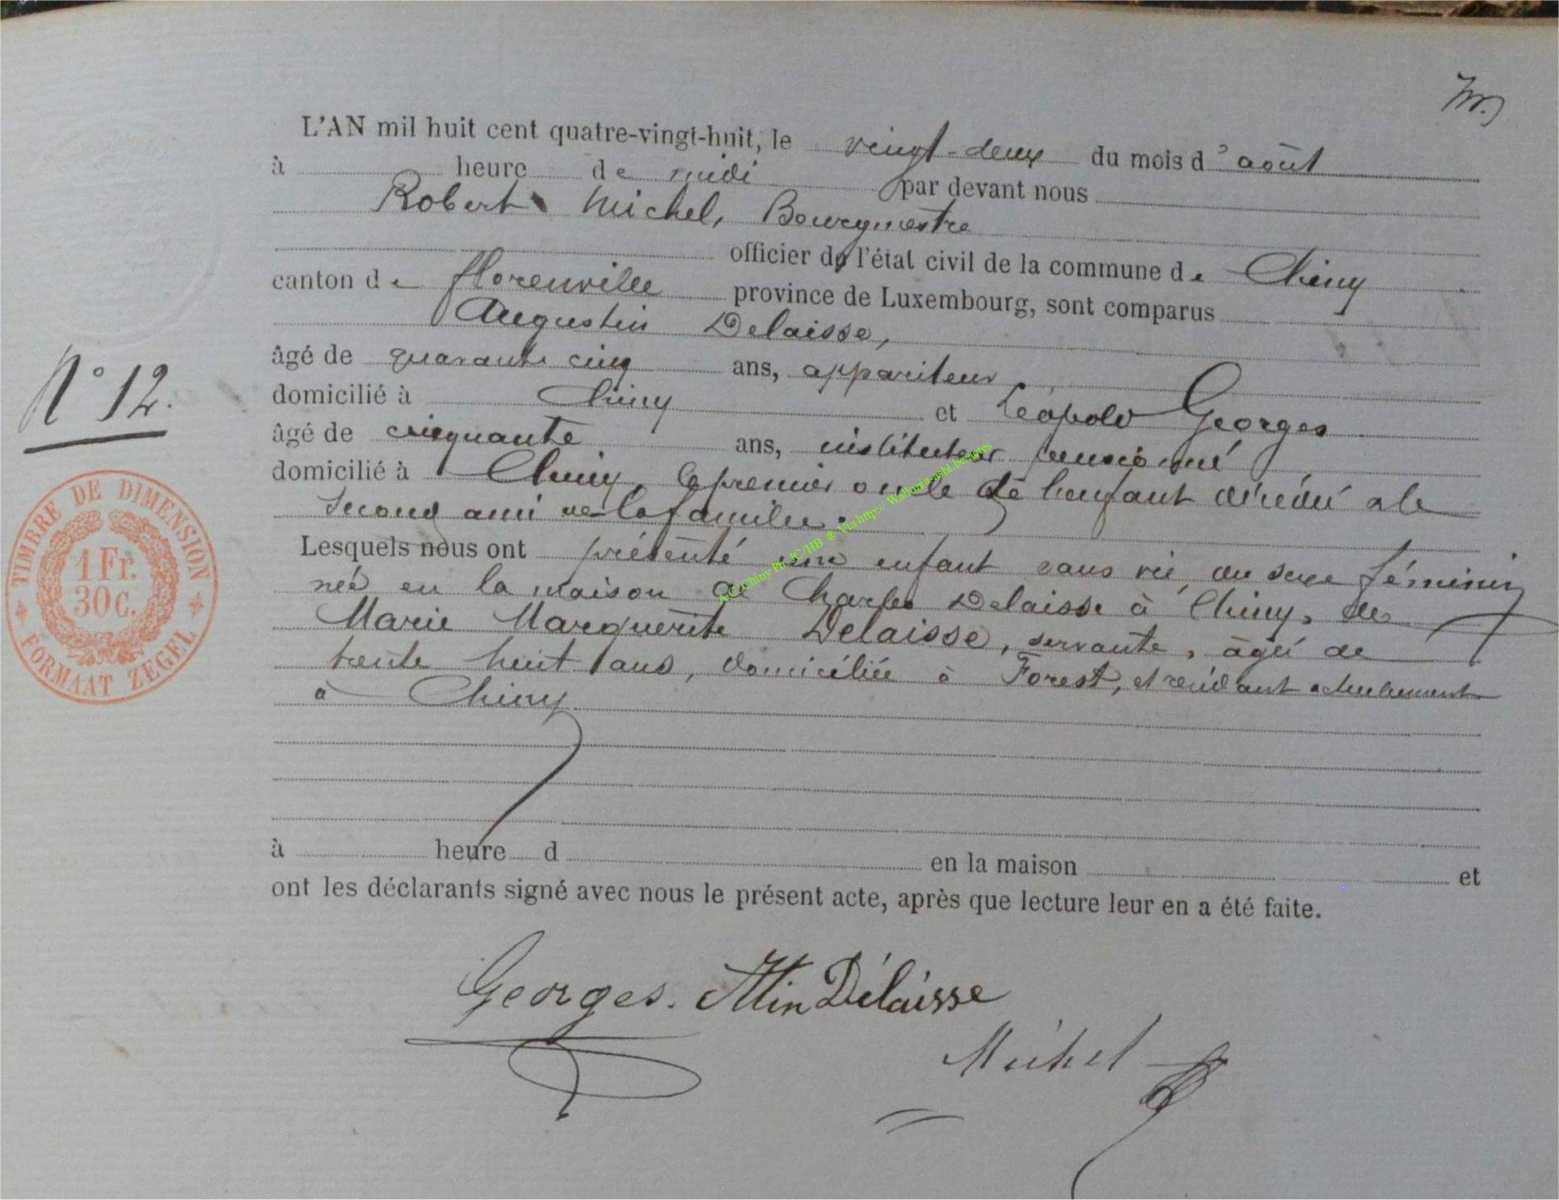 L'AN mil huit cent quatre-vingt-huit, le vingt-deux du mois d'août
à heure de midi par devant nous
Robert Michel, Bourgmestre
officier de l'état civil de la commune de Chiny
canton de florenville province de Luxembourg, sont comparus
Augustin Delaisse,
âgé de quarante cinq ans, appariteur
domicilié à Chiny et Léopold Georges
N° 12.
âgé de cinquante ans, instituteur pensionné
domicilié à Chiny, le premier oncle de l'enfant décédé et le
second ami de la famille.
Lesquels nous ont présenté un enfant sans vie, du sexe féminin
née en la maison de Charles Delaisse à Chiny, de
Marie Marguerite Delaisse, servante, âgée de
trente huit ans, domiciliée à Forest, et résidant actuellement
à Chiny.
TIMBRE DE DIMENSION
1 Fr.
30 C.
FORMAAT ZEGEL
à heure d en la maison et
ont les déclarants signé avec nous le présent acte, après que lecture leur en a été faite.
Georges. Atin Délaisse
Michel